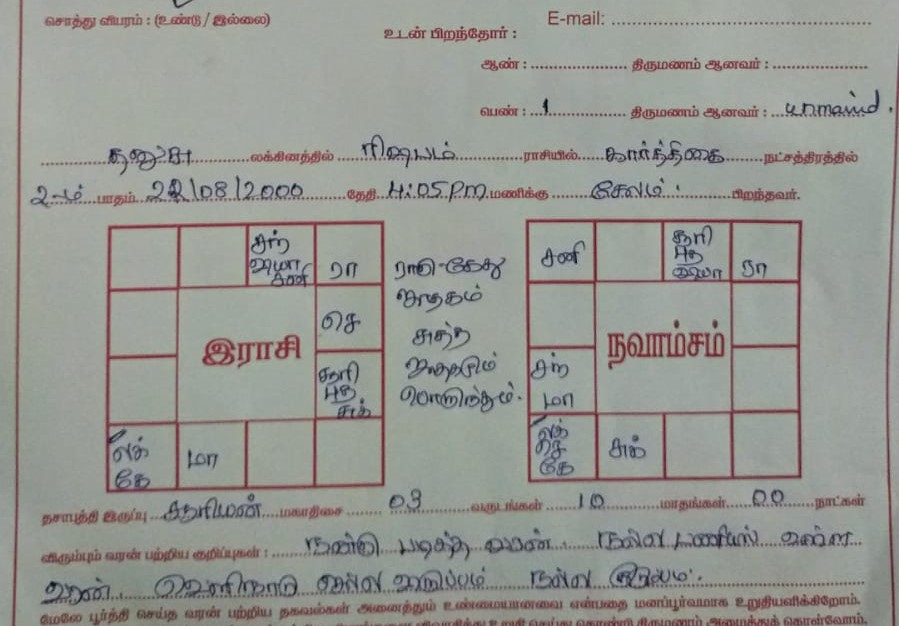 சொத்து விபரம் : (உண்டு / இல்லை)
E-mail: ..........
உடன் பிறந்தோர் :
ஆண் : .......... திருமணம் ஆனவர் : ..........
பெண் : 1 திருமணம் ஆனவர் : unmarried.
தனுசு லக்கினத்தில் ரிஷபம் ராசியில் கார்த்திகை நட்சத்திரத்தில்
2-ம் பாதம் 22/08/2000 தேதி 4:05 P.M மணிக்கு சேலம். பிறந்தவர்.
சந் சனி சூரி
சனி ரா புத ரா
செ
இராசி
சூரி புத சுக்
லக் கே மா
ராகு-கேது
ஜாதகம்
சுத்த
ஜாதகமும்
பொருந்தும்.
நவாம்சம்
சந் மா
லக் செ கே சுக்
தசாபுத்தி இருப்பு சூரியன் மகாதிசை 03 வருடங்கள் 10 மாதங்கள் 00 நாட்கள்
விரும்பும் வரன் பற்றிய குறிப்புகள் : நன்கு படித்த நல்ல பணியில் உள்ள
வரன். வெளிநாடு செல்ல விருப்பம் நல்ல குடும்பம்.
மேலே பூர்த்தி செய்த வரன் பற்றிய தகவல்கள் அனைத்தும் உண்மையானவை என்பதை மனப்பூர்வமாக உறுதியளிக்கிறோம்.